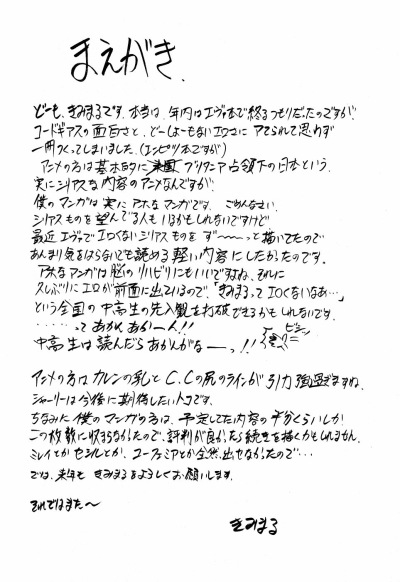 まえがき、
どーも、きみまるです。本当は、年内はエヴァ本で終るつもりだったのですが、
コードギアスの面白さと、どーしよーもないエロさに アてられて思わず
一冊つくってしまいました。(エンピツ本ですが)
アニメの方は基本的に ブリタニア占領下の日本という、
実にシリアスな内容のアニメなんですが、
僕のマンガは実にアホなマンガです。ごめんなさい。
シリアスものを望んでる人もいるかもしれないですけど
最近エヴァでエロくないシリアスものを ず〜〜っと描いてたので
あんまり気をはらないでも読める軽い内容にしたかったのです。
アホなマンガは脳のリハビリにもいいですよね、それに
久しぶりにエロが前面に出ているので、「きみまるってエロくないなあ…」
という全国の中高生の先入観を打破できるかもしれないです。
・・・・・って あかん、あかーん!!
中高生は読んだらあかんがなーっ!!
アニメの方はカレンの乳とC.C.の尻のラインが引力強過ぎますね。
シャーリーは今後に期待したいトコです。
ちなみに僕のマンガの方は、予定してた内容の半分くらいしか
この枚数に収まらなかったので、評判が良かったら続きを描くかもしれません。
ミレイとかセシルとか、ユーフェミアとか全然出せなかったので…
では、来年も きみまるをよろしくお願いします。
それではまた〜
きみまる